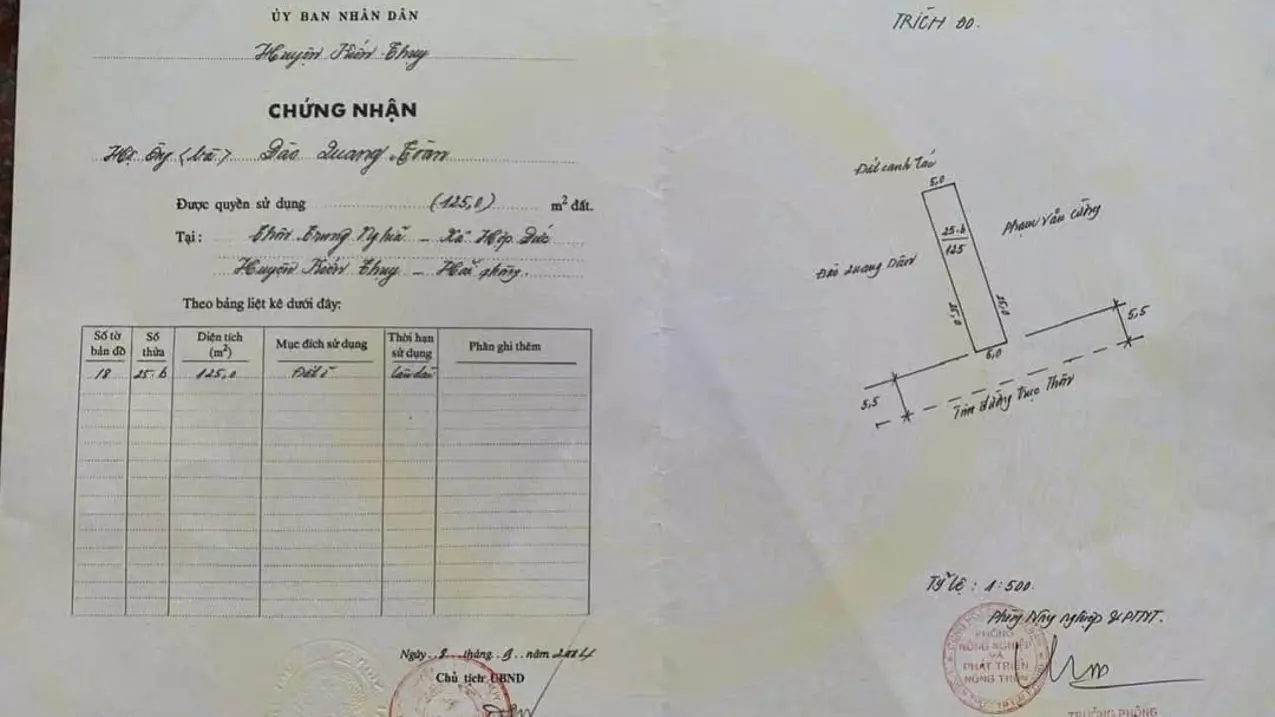 ỦY BAN NHÂN DÂN
Huyện Kiến Thụy
CHỨNG NHẬN
Hộ Ông (bà) Đào Quang
Được quyền sử dụng (125,0) m² đất.
Tại: Thôn Trung Nghĩa - Xã Hợp Đức
Huyện Kiến Thụy - Hải phòng.
Theo bảng liệt kê dưới đây:
Số tờ bản đồ Số thửa Diện tích (m²) Mục đích sử dụng Thời hạn sử dụng Phần ghi thêm
18 25-b 125,0 Đất ở lâu dài
Ngày 8 tháng 9 năm 2004
Chủ tịch UBND
TRÍCH ĐO.
Đất canh tác
5,0
25-b
125
Phạm Văn Cường
Đào Quang
25,0
25,0
5,0
5,5
5,5
Tim đường trục thôn
Tỷ lệ: 1:500.
Phòng Nông nghiệp & PTNT.
PHÒNG
NÔNG NGHIỆP
VÀ
PHÁT TRIỂN
NÔNG THÔN
TRƯỞNG PHÒNG